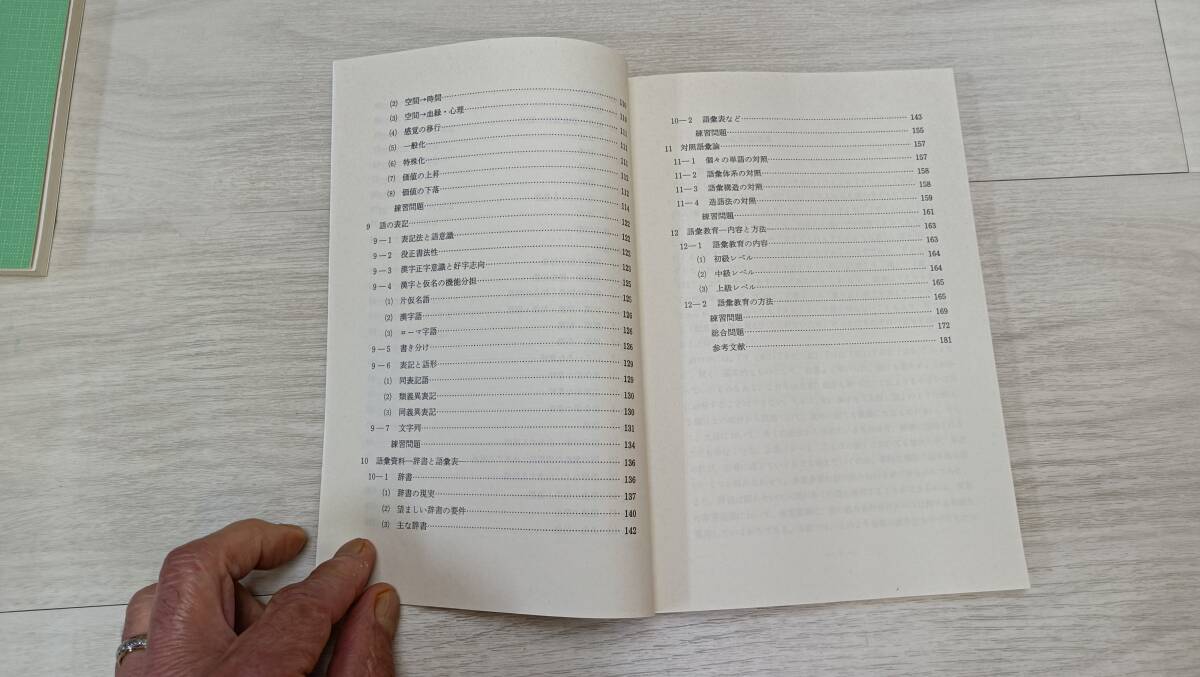 (2) 空間→時間
(3) 空間→血縁・心理 110
(4) 感覚の移行 111
(5) 一般化 111
(6) 特殊化 112
(7) 価値の上昇 112
(8) 価値の下落 112
練習問題 114
9 語の表記 122
9—1 表記法と語意識 122
9—2 没正書法性 122
9—3 漢字正字意識と好字志向 123
9—4 漢字と仮名の機能分担 125
(1) 片仮名語 125
(2) 漢字語 126
(3) ローマ字語 126
9—5 書き分け 126
9—6 表記と語形 129
(1) 同表記語 129
(2) 類義異表記 130
(3) 同義異表記 130
9—7 文字列 131
練習問題 134
10 語彙資料—辞書と語彙表 136
10—1 辞書 136
(1) 辞書の現実 137
(2) 望ましい辞書の要件 140
(3) 主な辞書 142
10—2 語彙表など 143
練習問題 155
11 対照語彙論 157
11—1 個々の単語の対照 157
11—2 語彙体系の対照 158
11—3 語彙構造の対照 158
11—4 造語法の対照 159
練習問題 161
12 語彙教育—内容と方法 163
12—1 語彙教育の内容 163
(1) 初級レベル 164
(2) 中級レベル 164
(3) 上級レベル 165
12—2 語彙教育の方法 165
練習問題 169
総合問題 172
参考文献 181